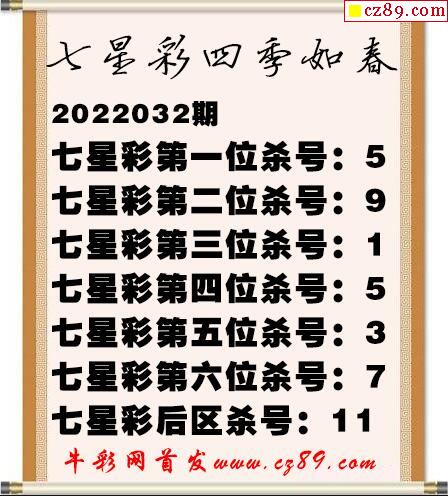 cz89.com
七星彩四季如春
2022032期
七星彩第一位杀号：5
七星彩第二位杀号：9
七星彩第三位杀号：1
七星彩第四位杀号：5
七星彩第五位杀号：3
七星彩第六位杀号：7
七星彩后区杀号：11
牛彩网首发www.cz89.com